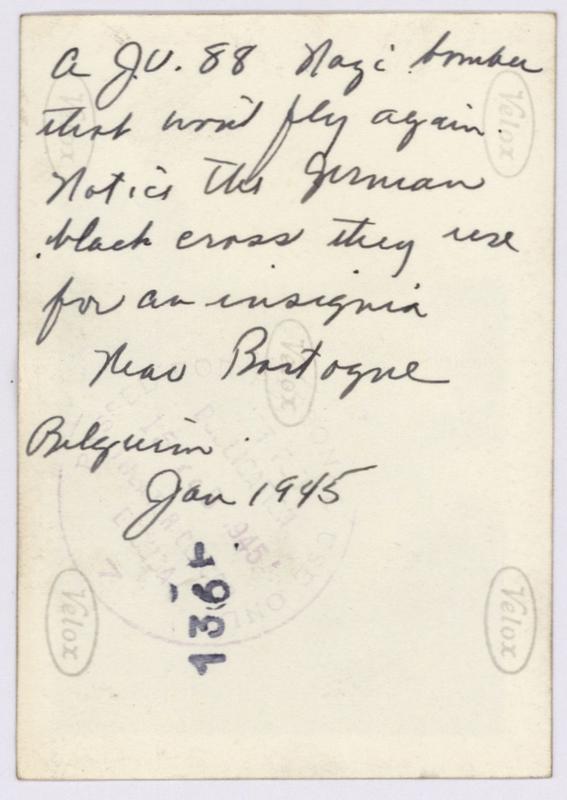 A JU. 88 Nazi bomber
that won't fly again.
Notice the German
black cross they use
for an insignia
Near Bastogne
Belguim.
Jan 1945
1361
Velox
Velox
Velox
Velox
Velox